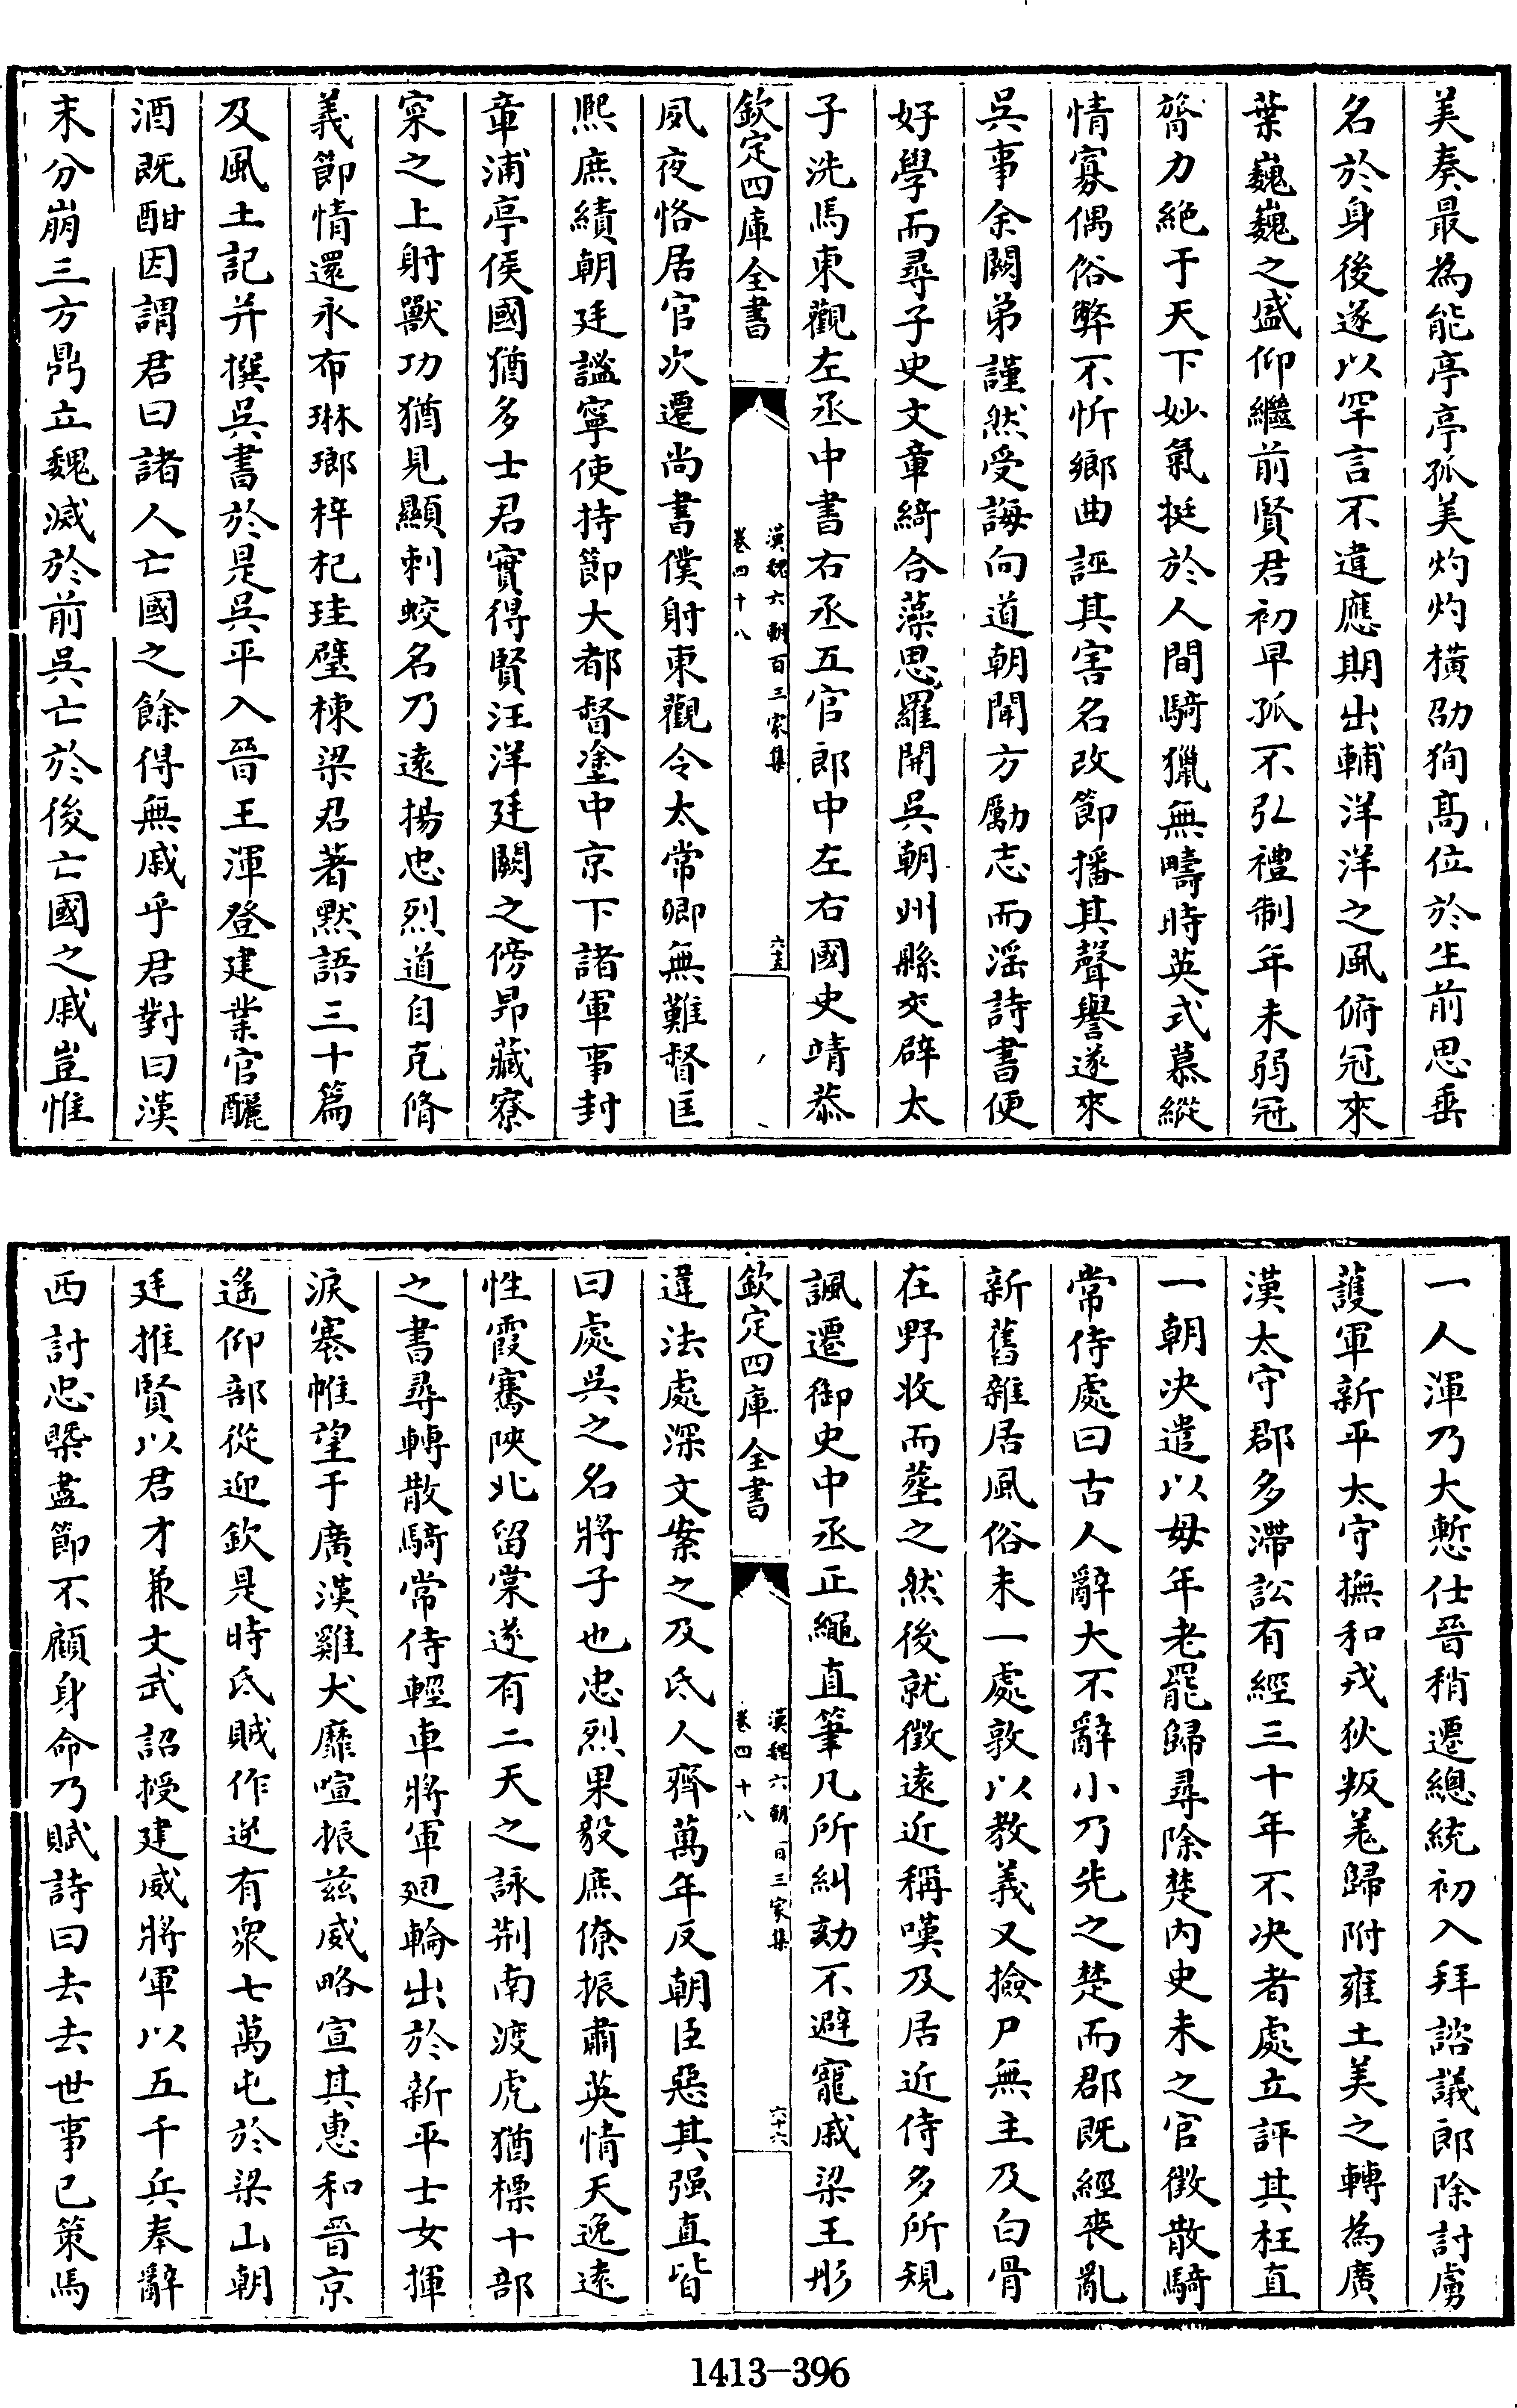 美奏最為能亭亭孤美灼灼橫劭狥髙位於生前思垂
名於身後遂以罕言不違應期出輔洋洋之風俯冠來
葉巍巍之盛仰繼前賢君初早孤不弘禮制年未弱冠
膂力絶于天下妙氣挺於人間騎獵無疇時英式慕縱
情寡偶俗弊不忻鄉曲誣其害名改節播其聲譽遂來
吳事余闕弟謹然受誨向道朝聞方勵志而滛詩書便
好學而尋子史文章綺合藻思羅開吳朝州縣交辟太
子洗馬東觀左丞中書右丞五官郎中左右國史靖恭
欽定四庫全書
漢魏六朝百三家集
卷四十八
六十五
夙夜恪居官次遷尚書僕射東觀令太常卿無難督匡
熙庶績朝廷謐寧使持節大都督塗中京下諸軍事封
章浦亭侯國猶多士君實得賢汪洋廷闕之傍昂藏寮
寀之上射獸功猶見顯刺蛟名乃逺揚忠烈道自克脩
義節情還永布琳瑯梓杞珪璧棟梁君著默語三十篇
及風土記并撰吳書於是吳平入晉王渾登建業官釃
酒既酣因謂君曰諸人亡國之餘得無戚乎君對曰漢
末分崩三方鼎立魏滅於前吳亡於後亡國之戚豈惟
一人渾乃大慙仕晉稍遷總統初入拜諮議郎除討虜
護軍新平太守撫和戎狄叛羌歸附雍土美之轉為廣
漢太守郡多滯訟有經三十年不决者處立評其枉直
一朝决遣以毋年老罷歸尋除楚内史未之官徵散騎
常侍處曰古人辭大不辭小乃先之楚而郡既經喪亂
新舊雜居風俗未一處敦以教義又撿尸無主及白骨
在野收而塟之然後就徵逺近稱嘆及居近侍多所規
諷遷御史中丞正繩直筆凡所糾劾不避寵戚梁王肜
欽定四庫全書
漢魏六朝百三家集
卷四十八
六十六
違法處深文案之及氐人齊萬年反朝臣惡其强直皆
曰處吳之名將子也忠烈果毅庶僚振肅英情天逸逺
性霞騫陝北留棠遂有二天之詠荆南渡虎猶標十部
之書尋轉散騎常侍輕車將軍廻輪出於新平士女揮
淚褰帷望于廣漢雞犬靡喧振兹威略宣其惠和晉京
遙仰部從迎欽是時氐賊作逆有衆七萬屯於梁山朝
廷推賢以君才兼文武詔授建威將軍以五千兵奉辭
西討忠槩盡節不顧身命乃賦詩曰去去世事已策馬
1413-396